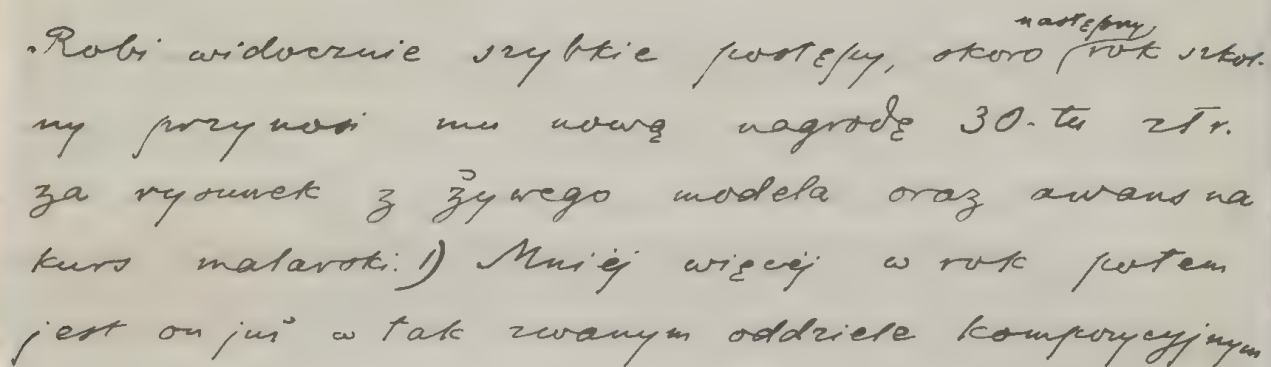 następny,
Robi widocznie szybkie postępy, skoro rok szkol-
ny przynosi mu nową nagrodę 30-tu złr.
za rysunek z żywego modela oraz awans na
kurs malarski. 1) Mniej więcej w rok potem
jest on już w tak zwanym oddziele kompozycyjnym